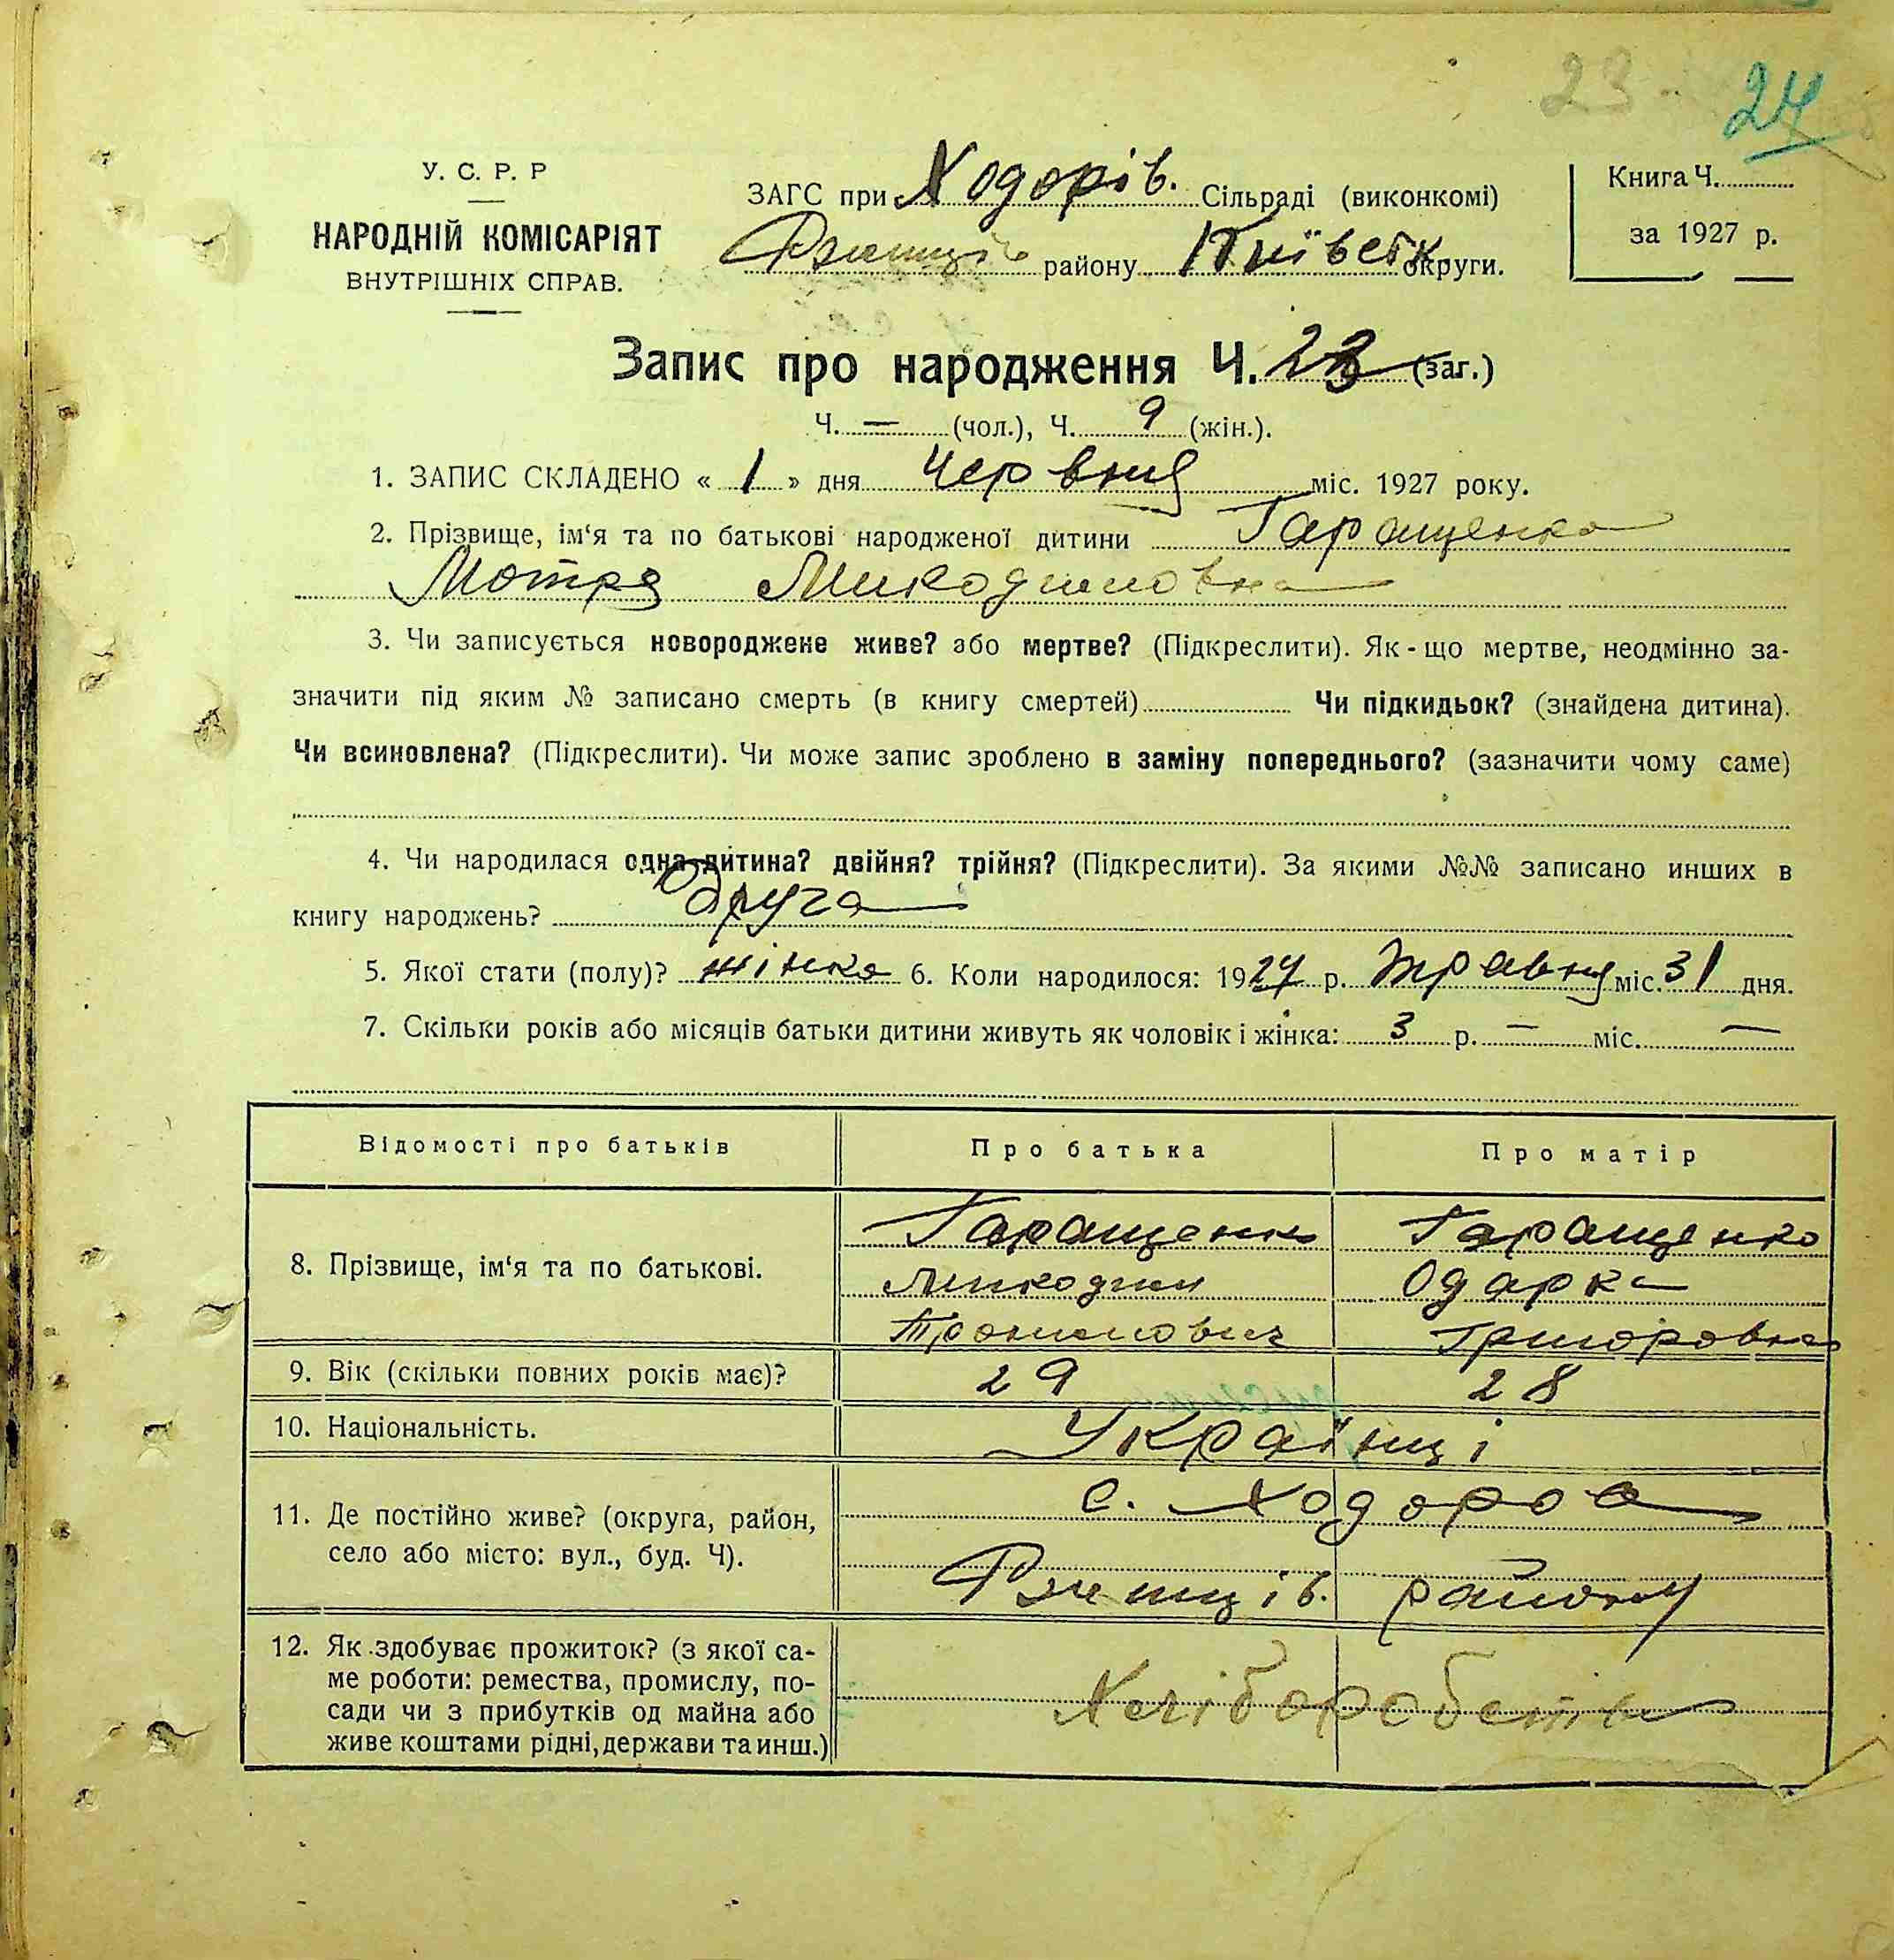 23
24
У. С. Р. Р
НАРОДНІЙ КОМІСАРІЯТ
ВНУТРІШНІХ СПРАВ.
ЗАГС при Ходорів. Сільраді (виконкомі)
Ржищів району Київськ округи.
Книга Ч.
за 1927 р.
Запис про народження Ч. 23 (заг.)
Ч. — (чол.), Ч. 9 (жін.).
1. ЗАПИС СКЛАДЕНО « 1 » дня Червня міс. 1927 року.
2. Прізвище, ім‘я та по батькові народженої дитини Гаращенко
Мотря Микодимовна
3. Чи записується новороджене живе? або мертве? (Підкреслити). Як - що мертве, неодмінно за-
значити під яким № записано смерть (в книгу смертей) Чи підкидьок? (знайдена дитина).
Чи всиновлена? (Підкреслити). Чи може запис зроблено в заміну попереднього? (зазначити чому саме)
4. Чи народилася одна дитина? двійня? трійня? (Підкреслити). За якими №№ записано инших в
книгу народжень? друга
5. Якої стати (полу)? жінка 6. Коли народилося: 1927 р. травня міс. 31 дня.
7. Скільки років або місяців батьки дитини живуть як чоловік і жінка: 3 р. — міс. —
Відомості про батьків Про батька Про матір
8. Прізвище, ім‘я та по батькові. Гаращенко Гаращенко
Микодим Одарка
Трохимович Григоровна
9. Вік (скільки повних років має)? 29 28
10. Національність. Українці
11. Де постійно живе? (округа, район, село або місто: вул., буд. Ч). с. Ходоров
Ржищів. району
12. Як здобуває прожиток? (з якої са-
ме роботи: ремества, промислу, по-
сади чи з прибутків од майна або
живе коштами рідні, держави та инш.)